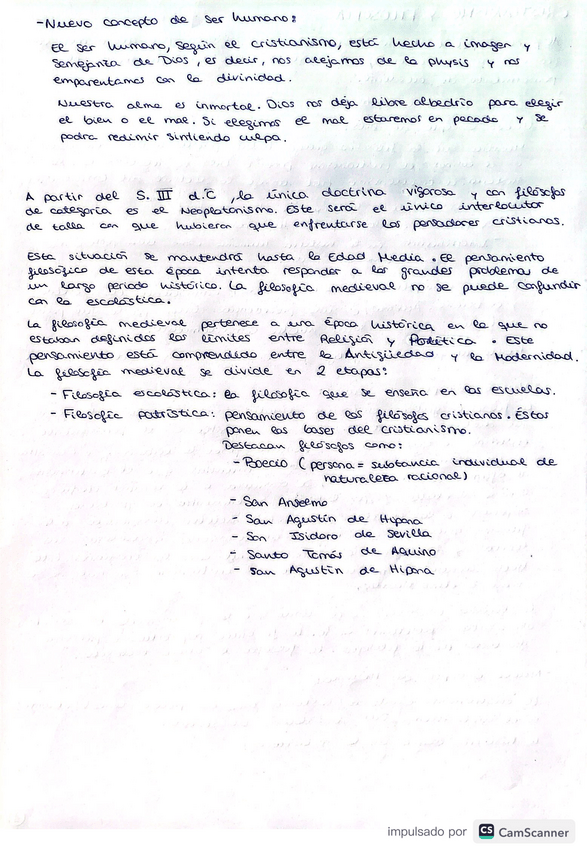 - Nuevo concepto de ser humano:
El ser humano, según el cristianismo, está hecho a imagen y
semejanza de Dios, es decir, nos alejamos de la physis y nos
emparentamos con la divinidad.
Nuestra alma es inmortal. Dios nos deja libre albedrío para elegir
el bien o el mal. Si elegimos el mal estaremos en pecado y se
podra redimir sintiendo culpa.
A partir del S. III d.C, la única doctrina vigorosa y con filósofos
de categoría es el Neoplatonismo. Este será el único interlocutor
de talla con que hubieran que enfrentarse los pensadores cristianos.
Esta situación se mantendrá hasta la Edad Media. El pensamiento
filosófico de esta época intenta responder a los grandes problemas de
un largo periodo histórico. La filosofía medieval no se puede confundir
con la escolástica.
La filosofía medieval pertenece a una época histórica en la que no
estaban definidos los límites entre Religión y Política. Este
pensamiento está comprendido entre la Antigüedad y la Modernidad.
La filosofía medieval se divide en 2 etapas:
- Filosofía escolástica: la filosofía que se enseña en las escuelas.
- Filosofía patrística: pensamiento de los filósofos cristianos. Éstos
ponen las bases del cristianismo.
Destacan filósofos como:
- Boecio (persona = substancia individual de
naturaleza racional)
- San Anselmo
- San Agustín de Hipona
- San Isidoro de Sevilla
- Santo Tomás de Aquino
- San Agustín de Hipona
impulsado por CS CamScanner